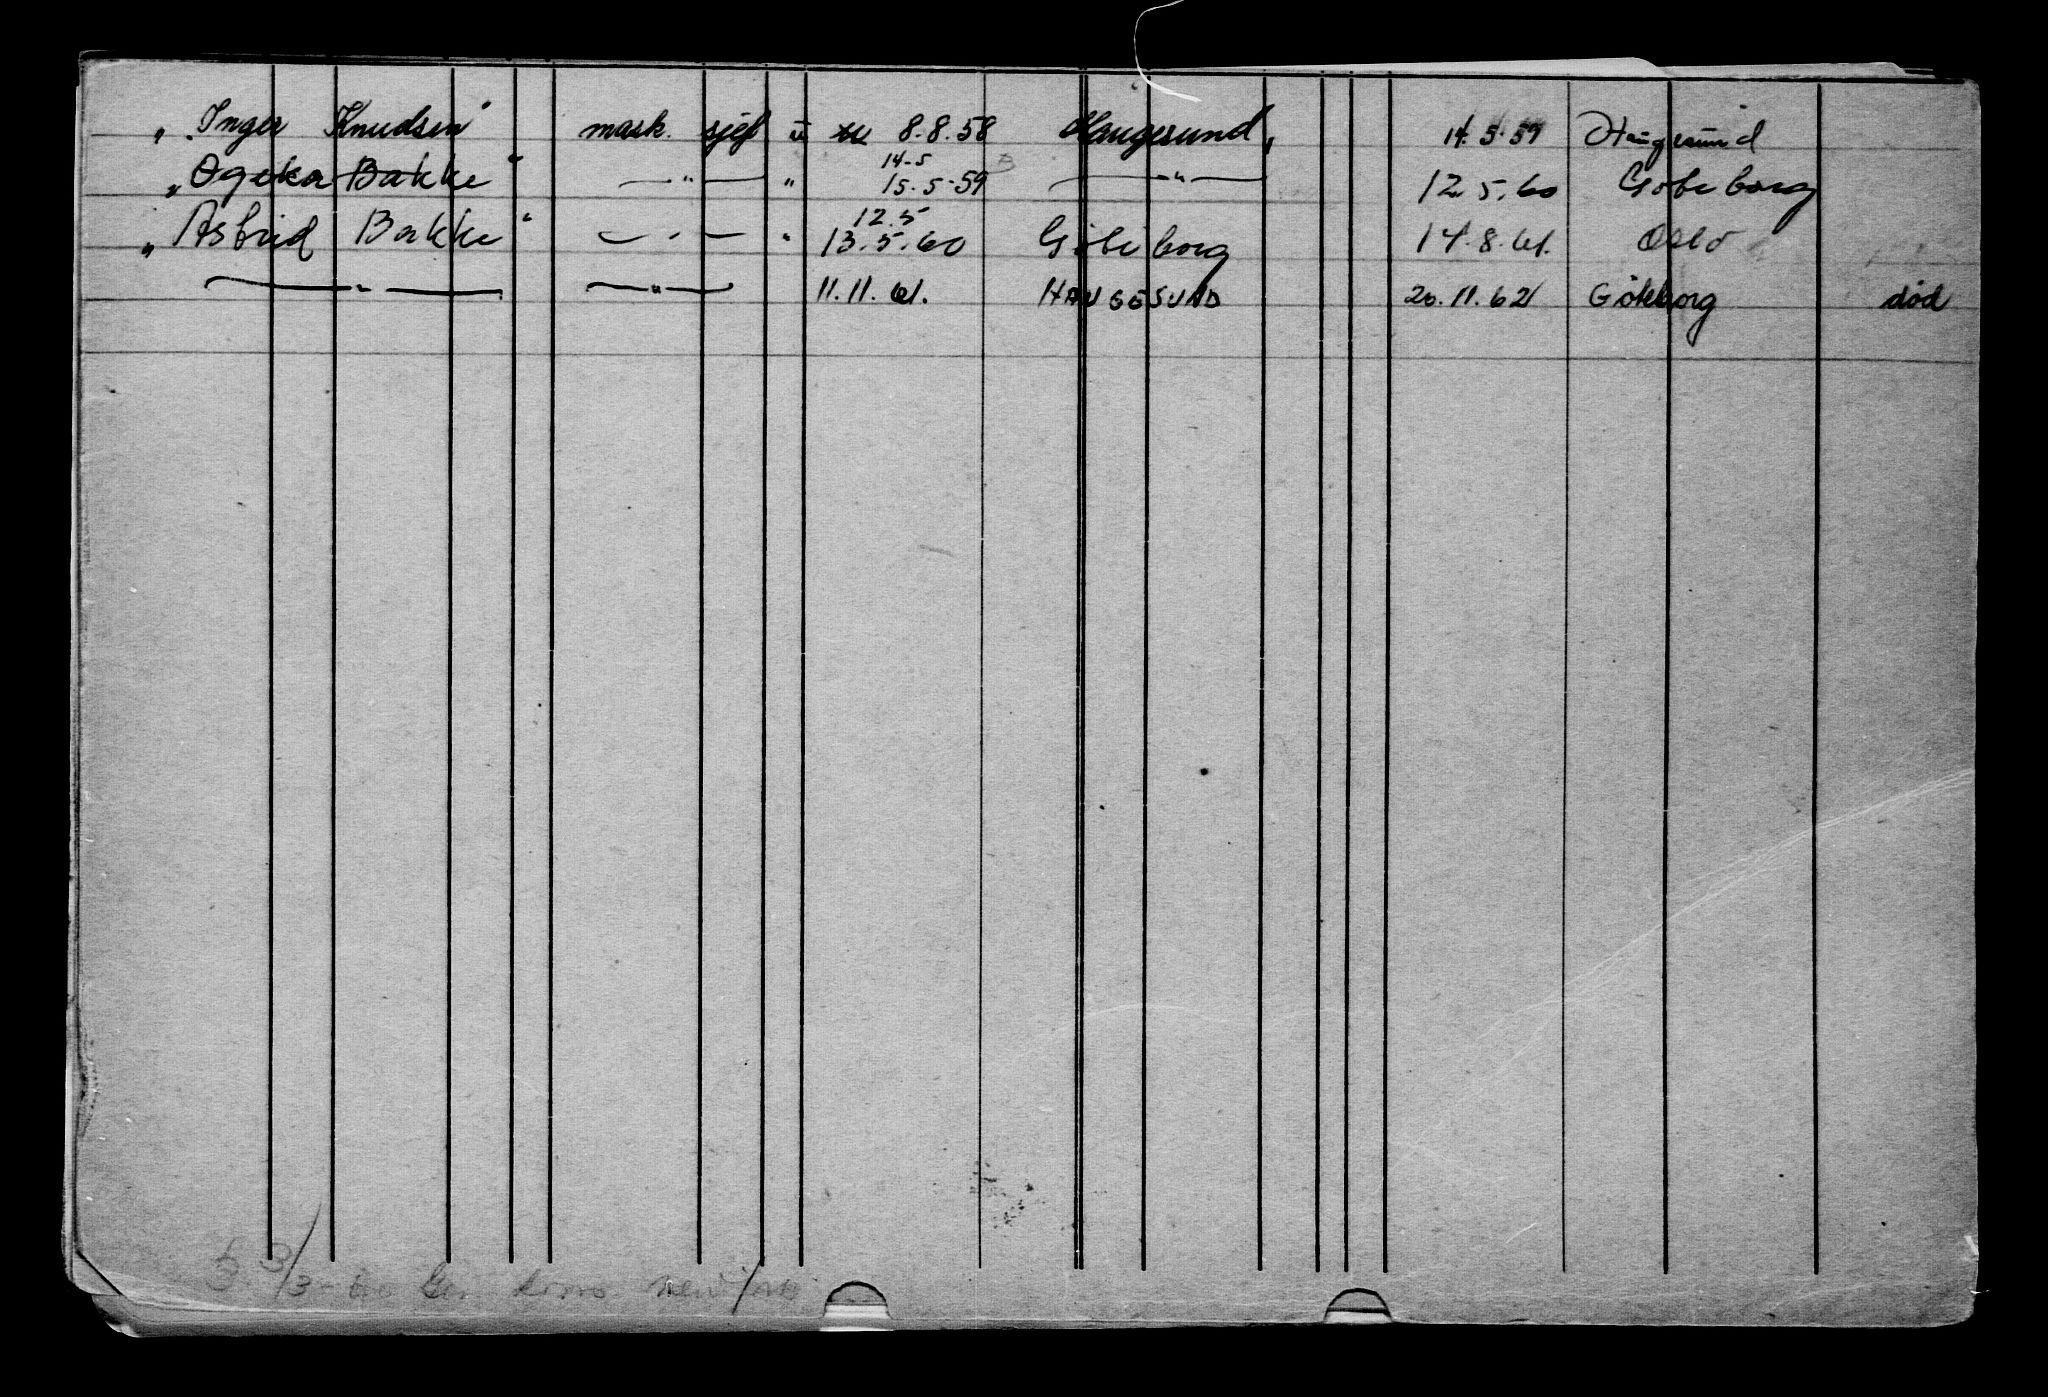 „Inger Knudsen" mask. sjef u 8.8.58 Haugesund, 14.5.59 Haugesund
14.5
„Ogeka Bakke" —"— " 15.5.59 —"— 12.5.60 Gøteborg
12.5
„Astrid Bakke" —"— " 13.5.60 Gøteborg 14.8.61. Oslo
—"— —"— 11.11.61. HAUGESUND 20.11.62 Göteborg død